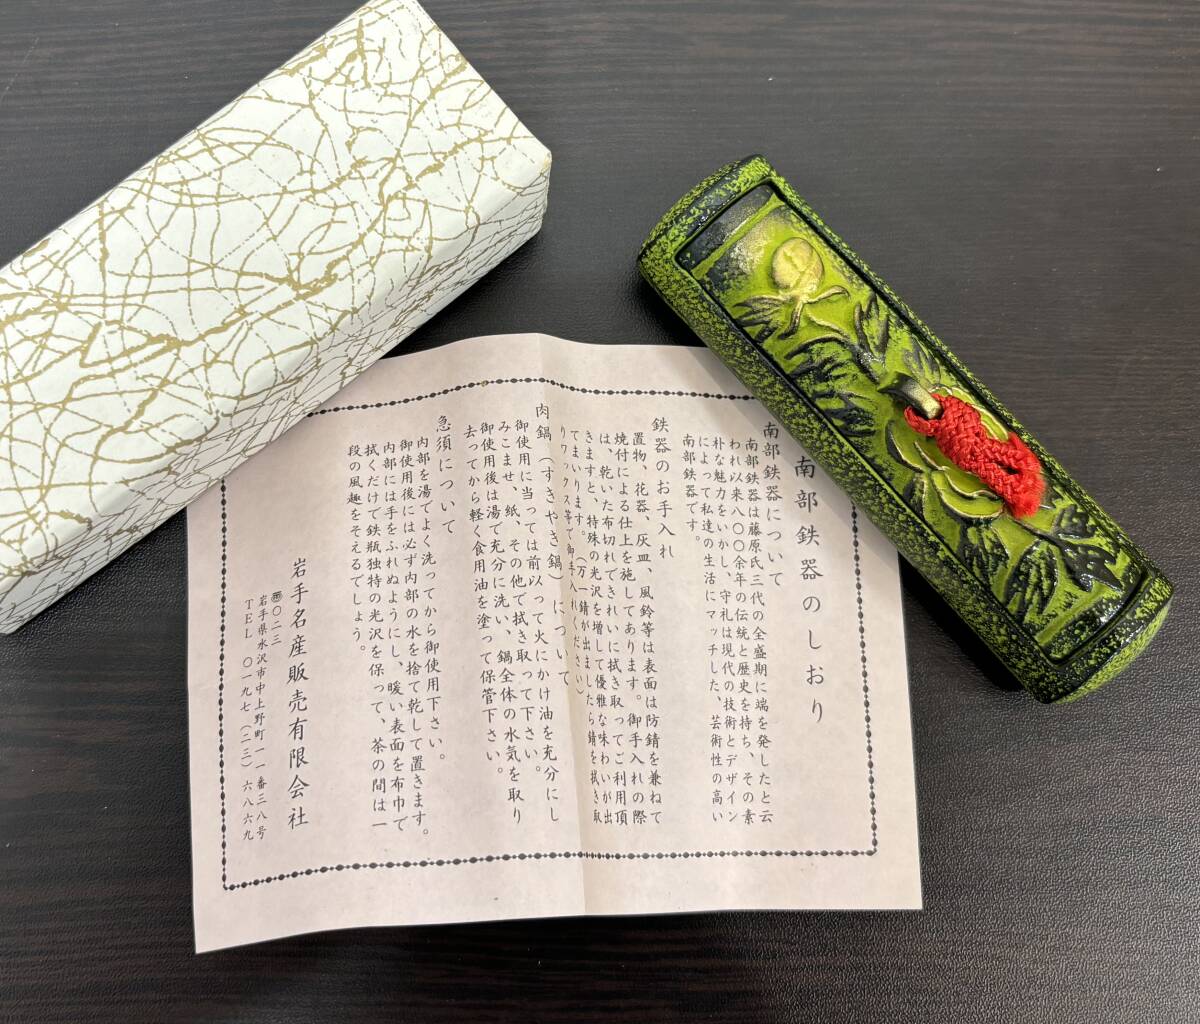 南部鉄器のしおり
南部鉄器について
南部鉄器は藤原氏三代の全盛期に端を発したと云
われ以来八〇〇余年の伝統と歴史を持ち、その素
朴な魅力をいかし、守礼は現代の技術とデザイン
によって私達の生活にマッチした、芸術性の高い
南部鉄器です。
鉄器のお手入れ
置物、花器、灰皿、風鈴等は表面は防錆を兼ねて
焼付による仕上を施してあります。御手入れの際
は、乾いた布切れできれいに拭き取ってご利用頂
きますと、特殊の光沢を増して優雅な味わいが出
てまいります。(万一錆が出ましたら錆を拭き取
りワックス等で御手入れください)
肉鍋(すきやき鍋)について
御使用に当っては前以って火にかけ油を充分にし
みこませ、紙、その他で拭き取って下さい。
御使用後は湯で充分に洗い、鍋全体の水気を取り
去ってから軽く食用油を塗って保管下さい。
急須について
内部を湯でよく洗ってから御使用下さい。
御使用後には必ず内部の水を捨て乾して置きます。
内部には手をふれぬようにし、暖い表面を布巾で
拭くだけで鉄瓶独特の光沢を保って、茶の間は一
段の風趣をそえるでしょう。
岩手名産販売有限会社
〒〇二三
岩手県水沢市中上野町一一番三八号
TEL 〇一九七(二三)六八六九